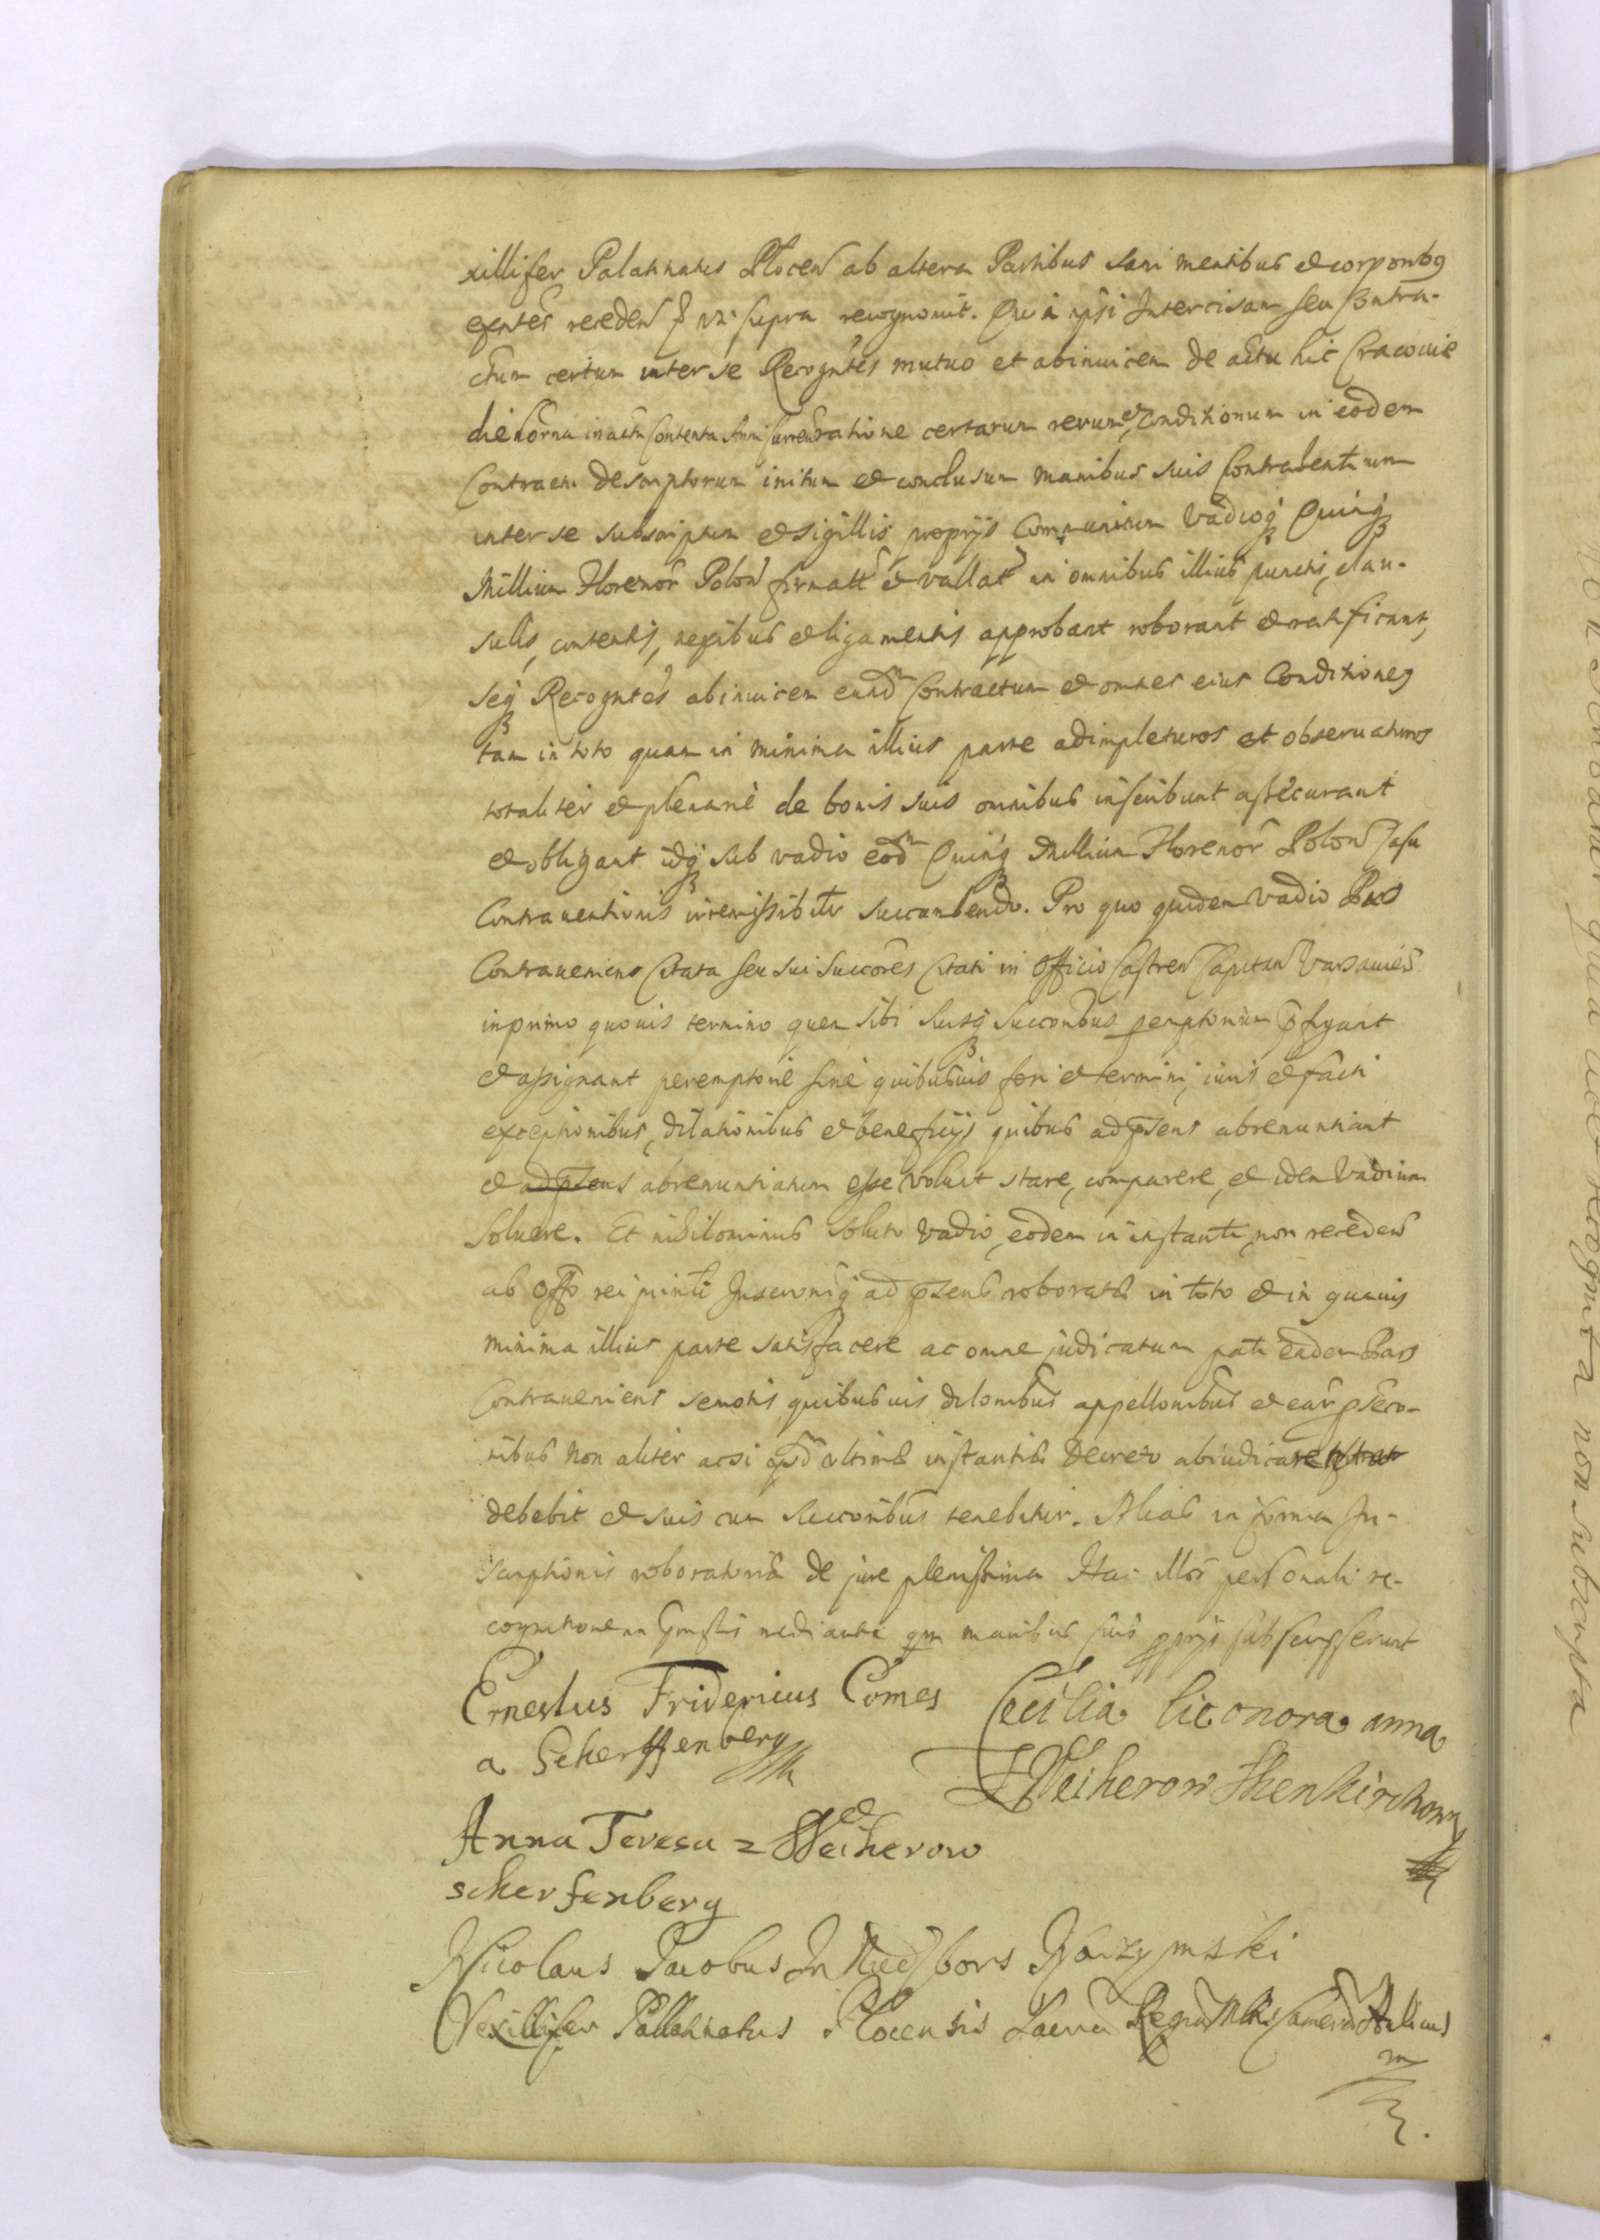 xillifer Palatinatus Plocen ab altera Partibus sani mentibus et corporibq
exntes receden supra recognovit. Quia ipsi Intercisam seu Contra-
ctum certum inter se Recogntes mutuo et abinuicem de actu hic Cracouie
ratione certarum rerum et Conditionum in eodem
Contractu descriptorum initum et conclusum manibus suis Contrahentium
inter se subscriptum et sigillis proprijs Communitum Vadioq Quinq
Millium Florenor Polon firmatt et vallat in omnibus illius punctis, clau-
sulis, contentis, nexibus et ligamentis approbant roborant et ratificant,
seq Recogntes abinuicem eund Contractum et omnes eius Conditiones
tam in toto quam in minima illius parte adimpleturos et obseruaturos
totaliter et plenarie de bonis suis omnibus inscribunt assecurant
et obligant idq sub vadio eod Quinq Millium Florenor Polon Casu
Contrauentionis irremissibilr succumbendo. Pro quo quidem Vadio Pars
Contraueniens Citata seu sui succores Citati in Officio Castren Capitan Varsauien
in primo quouis termino quem sibi suisq succoribus peremptorium pfigunt
et assignant peremptorie sine quibusuis fori et termini, iuris et facti
exceptionibus, dilationibus et beneficijs quibus ad psens abrenuntiant
et ad psens abrenuntiatum esse volunt stare, comparere, et idem Vadium
soluere. Et nihilominus soluto Vadio, eodem in instanti, non receden
ab Offo rei pinti Inscronisq ad psens roborata in toto et in quauis
minima illius parte satisfacere ac omne judicatum pati eadem Pars
Contraueniens semotis quibusuis dilonibus appellonibus et ear psecu-
nibus non aliter acsi ultima instantia Decreto abiudicare
debebit et suis cum succoribus tenebitur. Alias in forma In-
scriptionis roboratoria de jure plenissima Hac illor personali re-
cognitione mediante qm manibus suis pprijs subscripserunt
Ernestus Fridericus Comes
a Scherffenberg
Cecilia Lieonora anna
z Weiherow
Anna Teresa z Weiherow
scherfenberg
Nicolaus Jacobus In Narzymski
Vexillifer Pallatinatus Plocensis